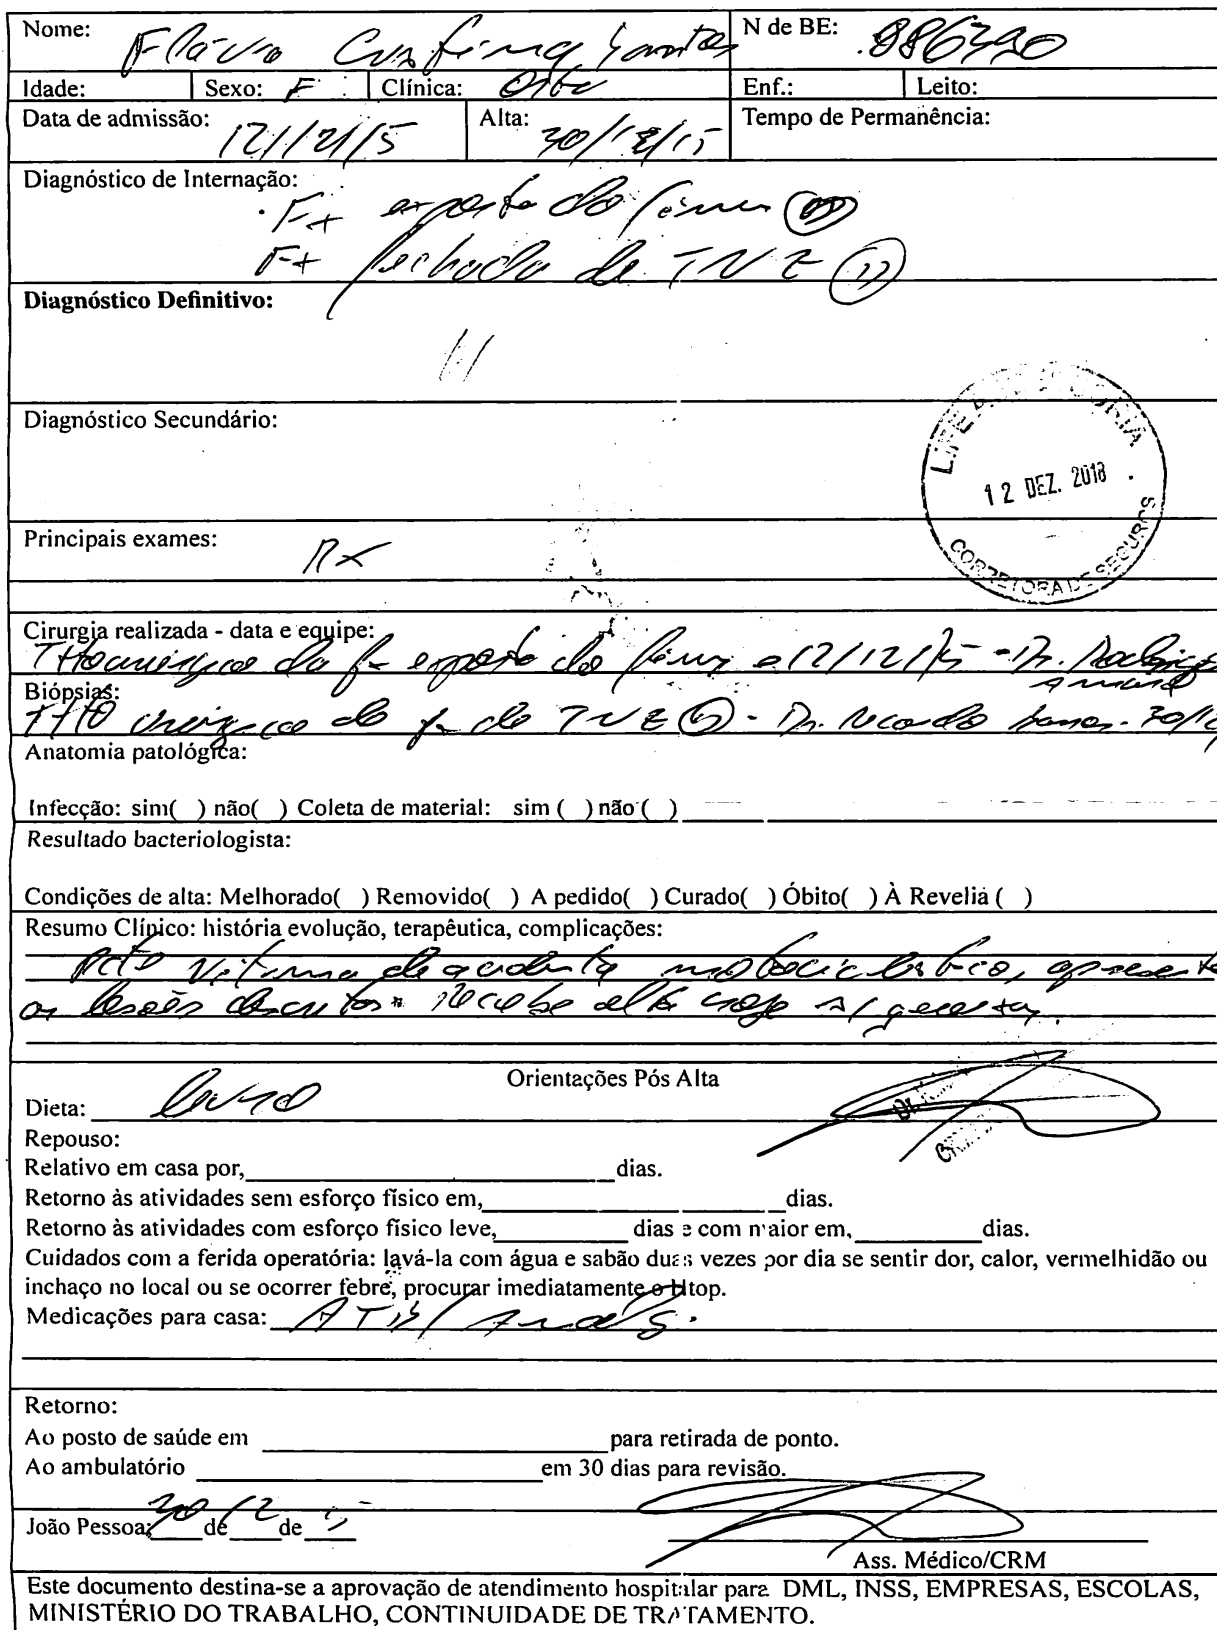 Nome: Flávia Cristina Santos N de BE: 886390
Idade: Sexo: F Clínica: Orto Enf.: Leito:
Data de admissão: 12/12/15 Alta: 30/12/15 Tempo de Permanência:
Diagnóstico de Internação:
Fx exposta do fêmur
Fx fechada de TNZ
Diagnóstico Definitivo:
Diagnóstico Secundário:
12 DEZ. 2018
CORRETORA DE SEGUROS
Principais exames: RX
Cirurgia realizada - data e equipe:
TTO cirúrgico da fx exposta do fêmur 12/12/15 - Dr. Rodrigo
Biópsias:
TTO cirúrgico da fx do TNZ - Dr. Ricardo
Anatomia patológica:
Infecção: sim( ) não( ) Coleta de material: sim ( ) não ( )
Resultado bacteriologista:
Condições de alta: Melhorado( ) Removido( ) A pedido( ) Curado( ) Óbito( ) À Revelia ( )
Resumo Clínico: história evolução, terapêutica, complicações:
Pcte vítima de acidente motociclístico, apresenta
as lesões descritas. Recebe alta hoje
Orientações Pós Alta
Dieta: livre
Repouso:
Relativo em casa por, dias.
Retorno às atividades sem esforço físico em, dias.
Retorno às atividades com esforço físico leve, dias e com maior em, dias.
Cuidados com a ferida operatória: lavá-la com água e sabão duas vezes por dia se sentir dor, calor, vermelhidão ou
inchaço no local ou se ocorrer febre, procurar imediatamente o Htop.
Medicações para casa: ATB/
Retorno:
Ao posto de saúde em para retirada de ponto.
Ao ambulatório em 30 dias para revisão.
João Pessoa, 30 de 12 de 15
Ass. Médico/CRM
Este documento destina-se a aprovação de atendimento hospitalar para DML, INSS, EMPRESAS, ESCOLAS,
MINISTÉRIO DO TRABALHO, CONTINUIDADE DE TRATAMENTO.